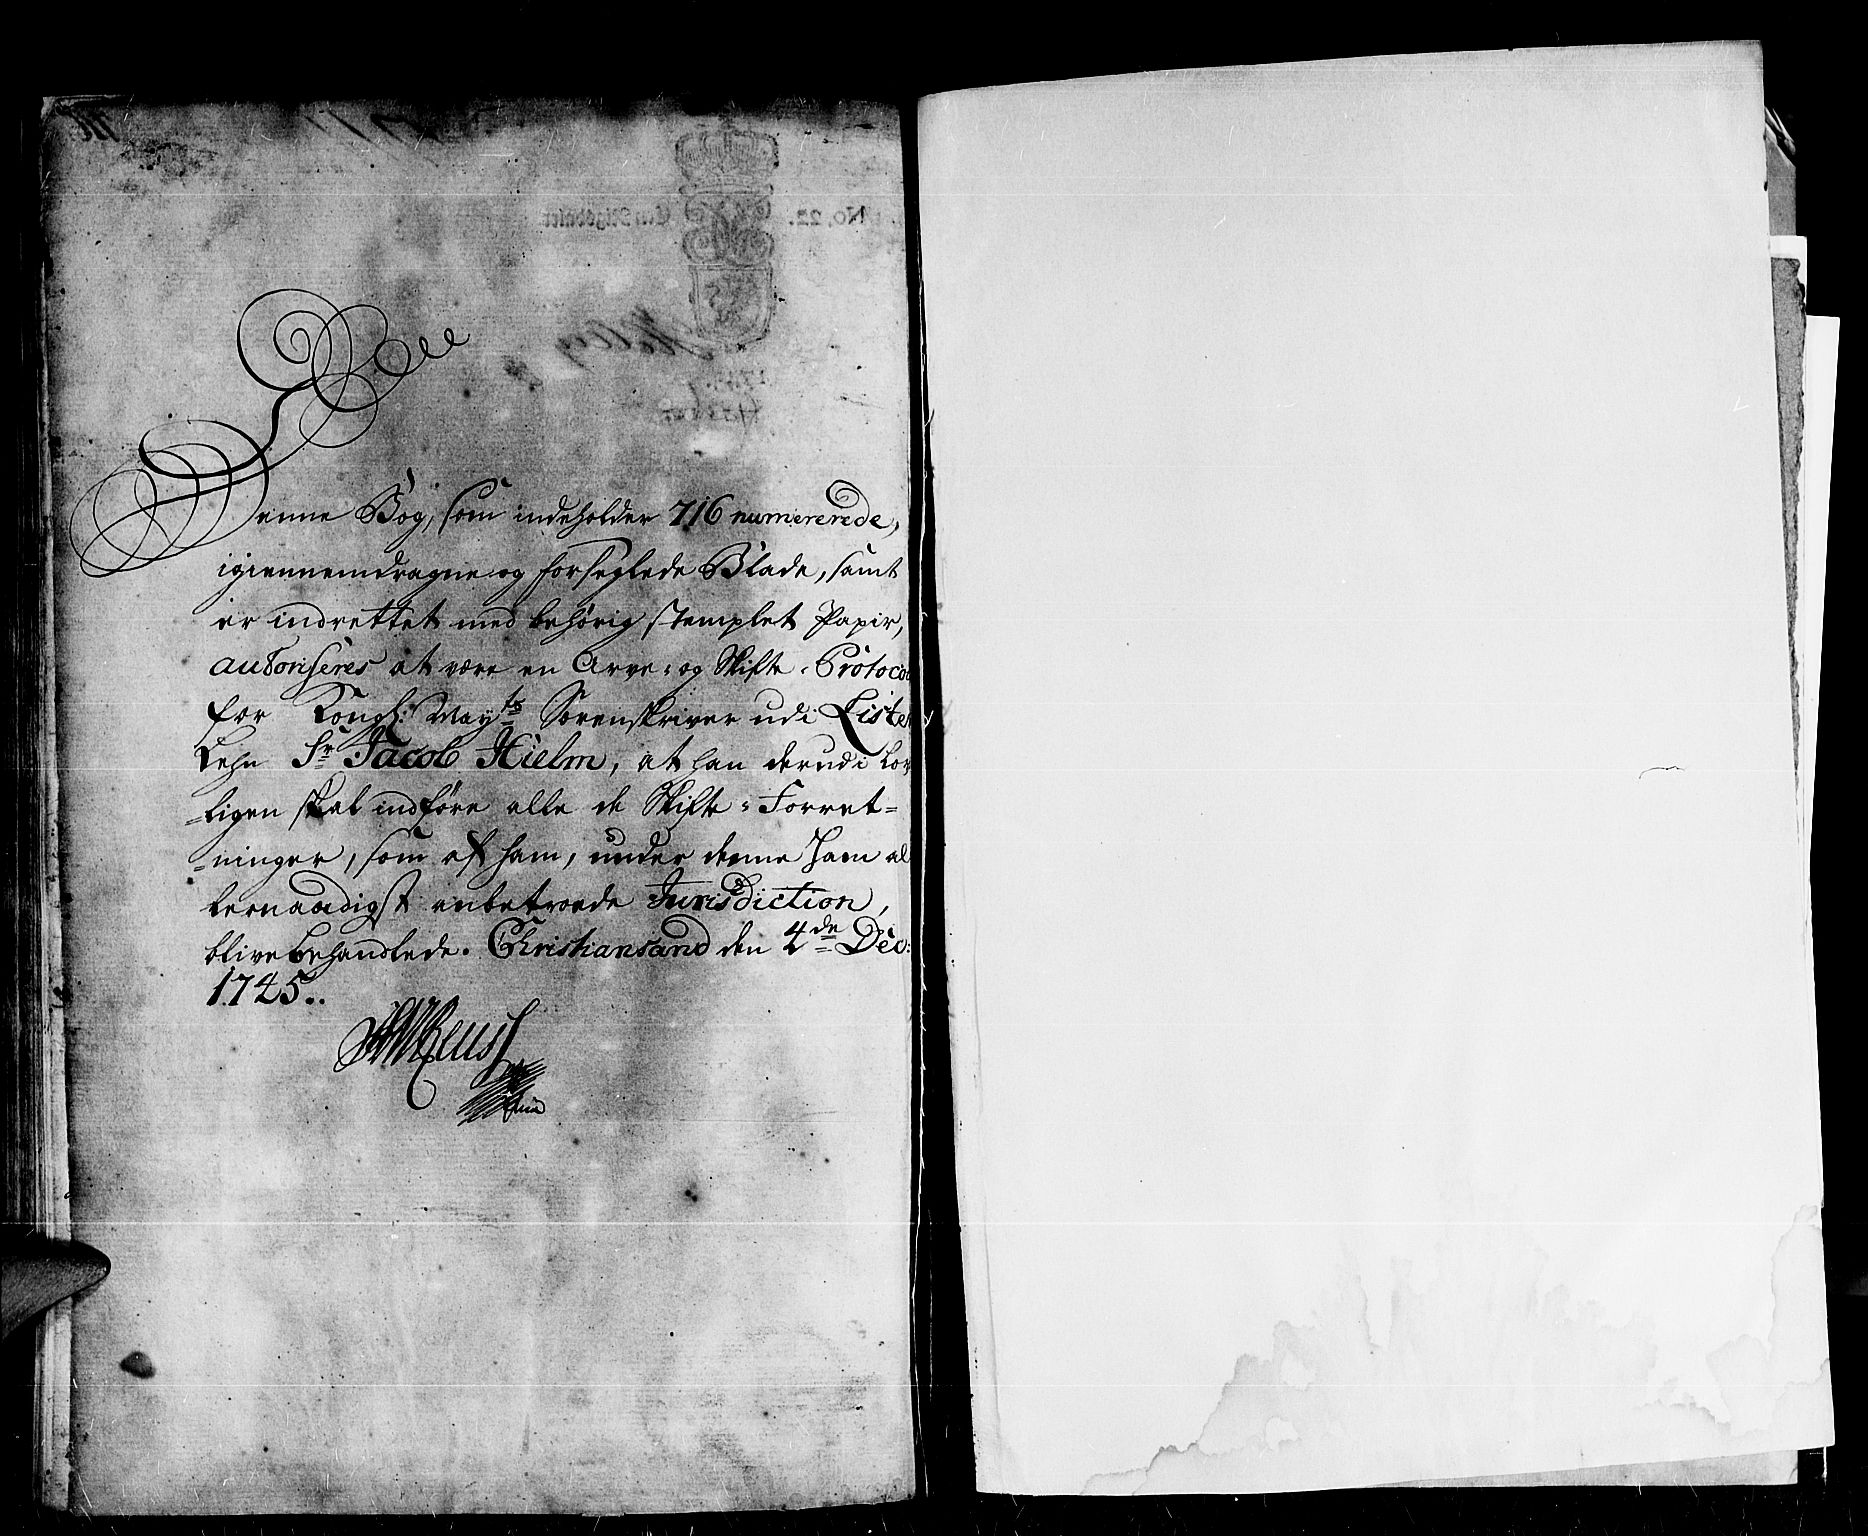 Denne Bog, som indeholder 716 numererede,
igiennemdragne og forseglede Blade, samt
er indrettet med behörig stemplet Papir,
autoriseres at være en Arve- og Skifte-Protocol
for Kongl: Mayts Sorenskriver udi Lister
Lehn Sr Jacob Hielm, at han derudi lov-
=ligen skal indføre alle de Skifte-Forret=
=ninger, som af ham, under denne ham al
lernaadigst anbetroede Jurisdiction,
blive behandlede. Christiansand den 4de Dec:
1745..
No. 22.